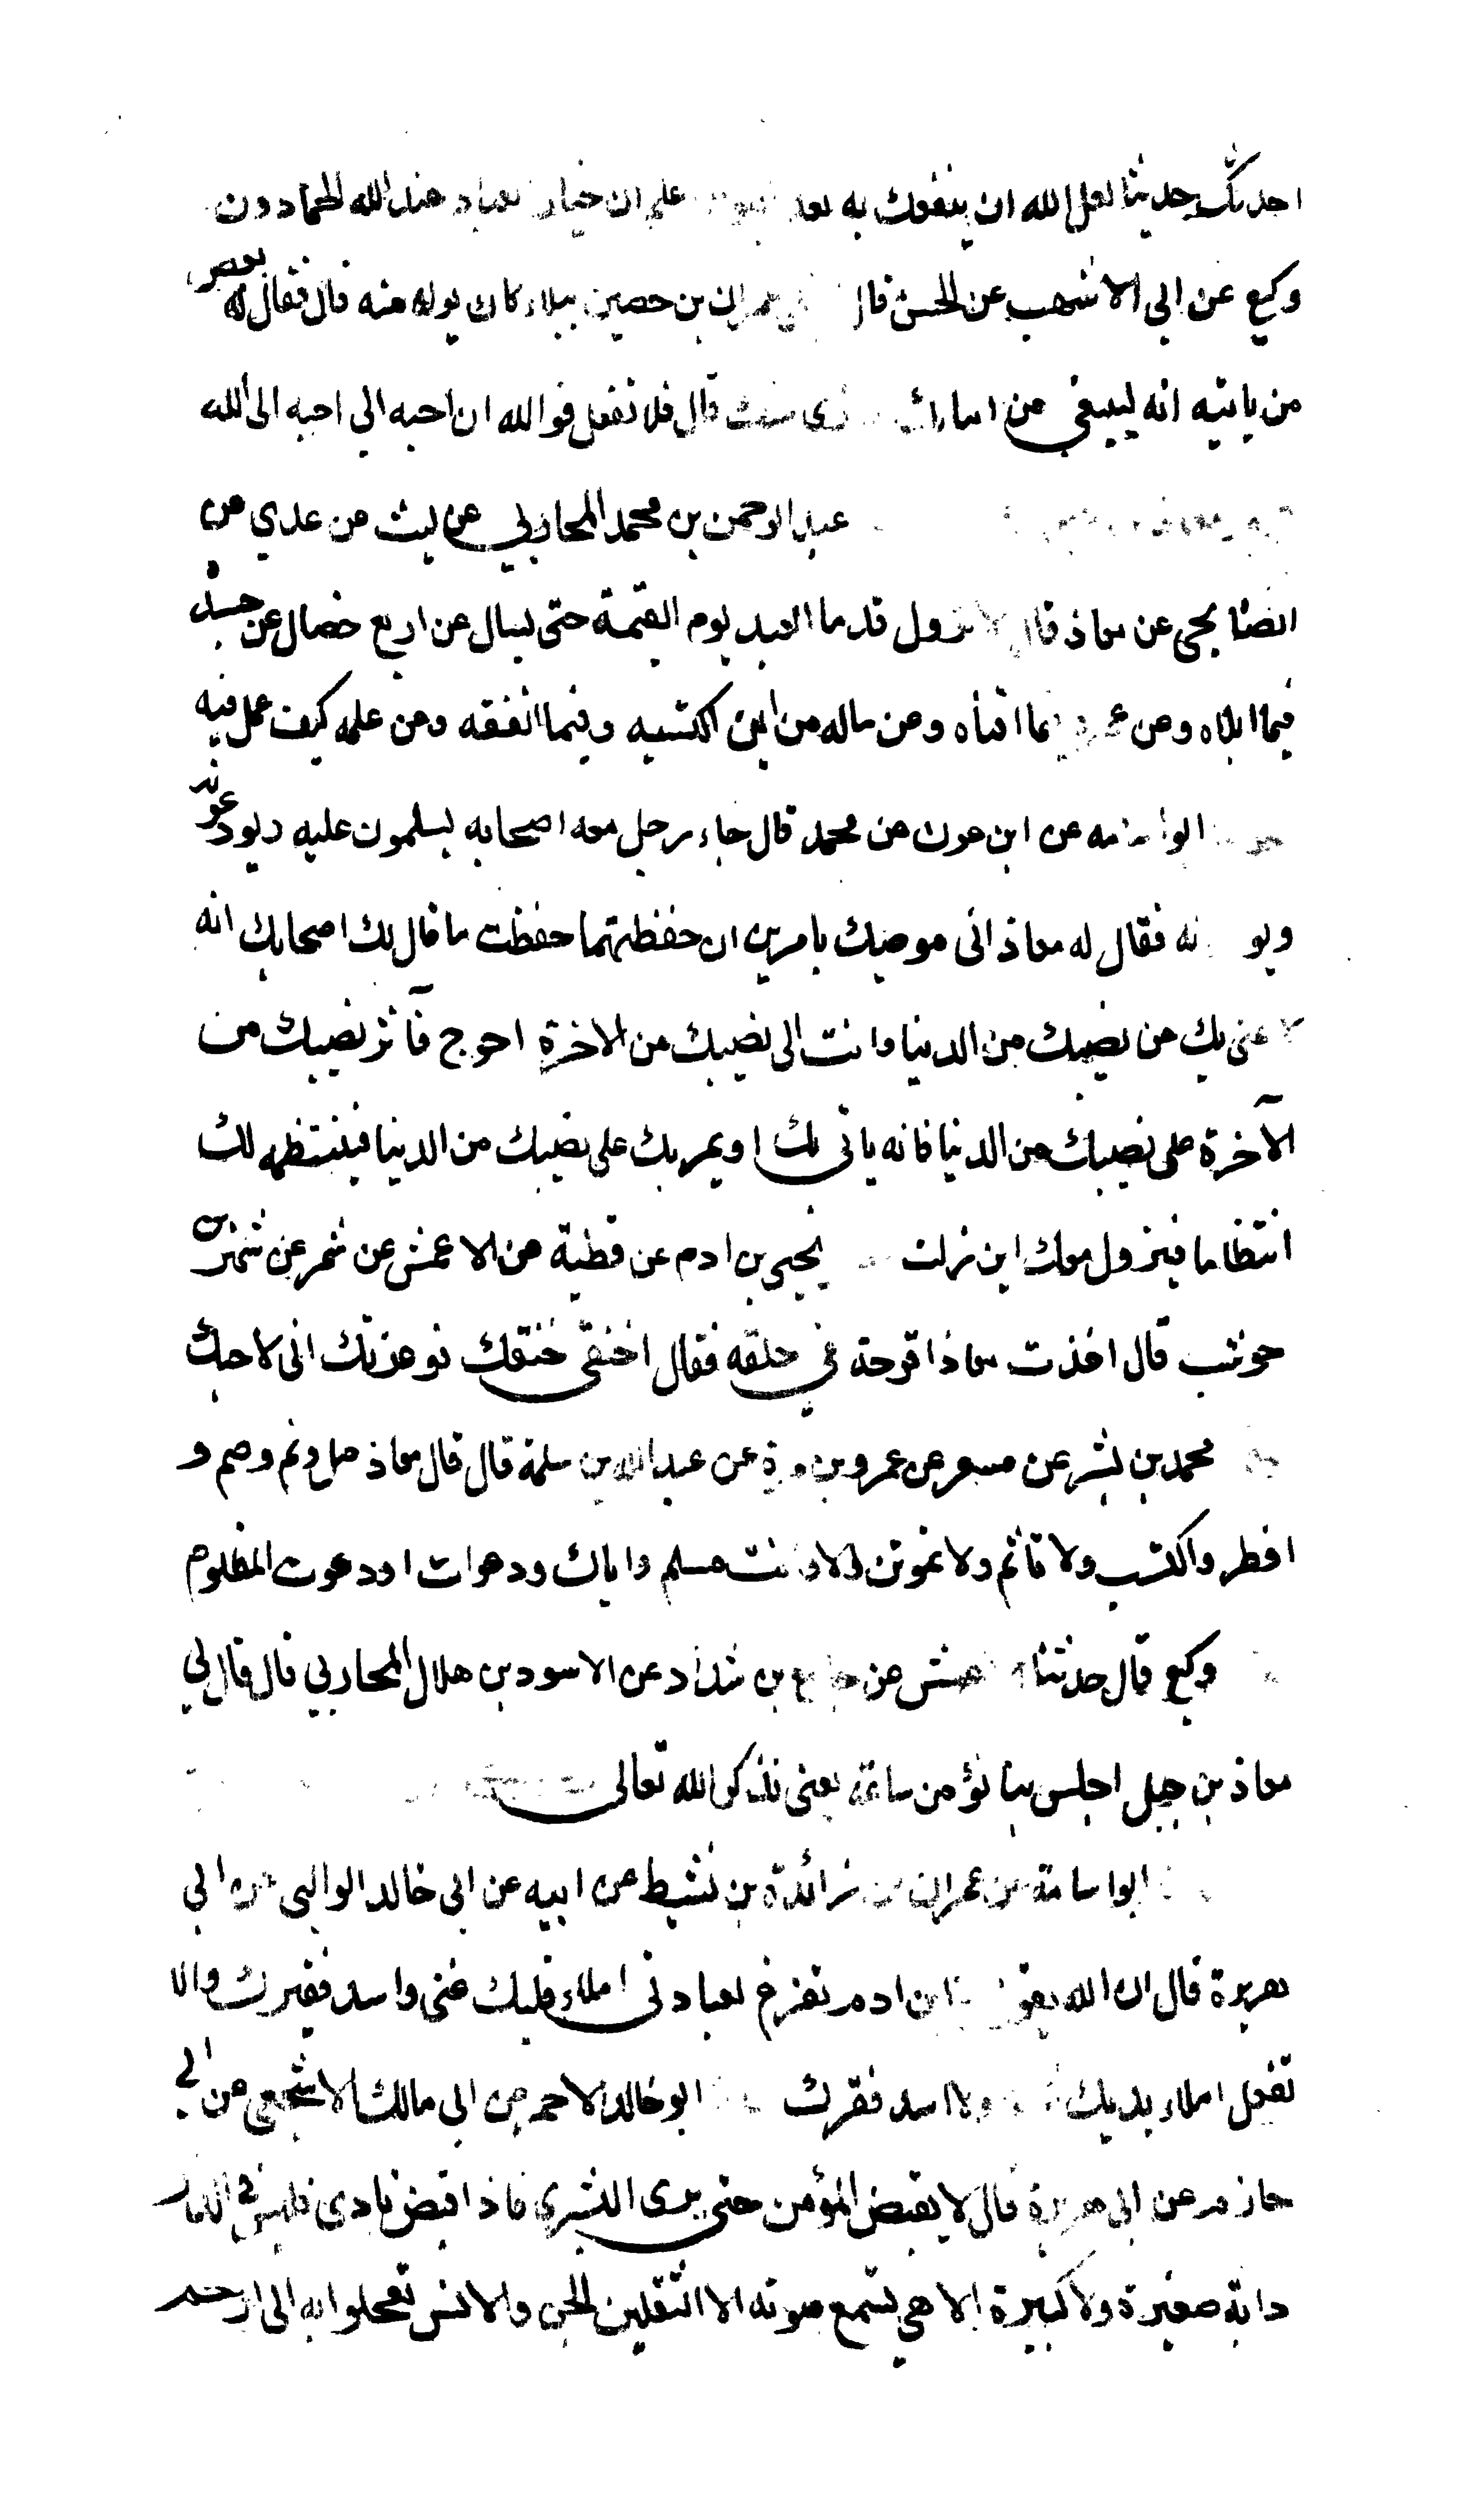 احدثك حديثا لعل الله ان ينفعك به بعد علم ان خيار العباد عند الله الحمادون
وكيع عن ابي الاشهب عن الحسن قال عمران بن حصين ببلاء كان يوله منه قال فقال له بعض
من ياتيه انه ليمنعني من اتيانك ارى منك قال فلا تفعل فوالله ان احبه الي احبه الى الله
عبد الرحمن بن محمد المحاربي عن ليث عن عدي عن
الصنابحي عن معاذ قال لا تزول قدما العبد يوم القيمة حتى يسال عن اربع خصال عن جسده
فيما ابلاه وعن عمره فيما افناه وعن ماله من اين اكتسبه وفيما انفقه وعن علمه كيف عمل فيه
ابو اسامه عن ابن عون عن محمد قال جاء رجل معه اصحابه يسلمون عليه ويودعونه
ويو نه فقال له معاذ انى موصيك بامرين ان حفظتهما حفظت ما قال لك اصحابك انه
لا غنى بك عن نصيبك من الدنيا وانت الى نصيبك من الاخرة احوج فآثر نصيبك من
الآخرة على نصيبك من الدنيا فانه ياتي بك او يمر بك على نصيبك من الدنيا فينتظمه لك
انتظاما فيزول معك اين زلت يحيى بن ادم عن قطبة عن الاعمش عن شمر عن شهر بن
حوشب قال اخذت معاذا قرحة في حلقه فقال اخنقي خنقك فوعزتك انى لاحبك
محمد بن بشر عن مسعر عن عمرو بن مرة عن عبد الله بن سلمة قال قال معاذ صل ونم وصم و
افطر واكتسب ولا تاثم ولا تموتن الا وانت مسلم واياك ودعوات او دعوت المظلوم
وكيع قال حدثنا الاعمش عن جامع بن شداد عن الاسود بن هلال المحاربي قال قال لي
معاذ بن جبل اجلس بنا نؤمن ساعة يعنى نذكر الله تعالى
ابو اسامة عن عمران بن زائدة بن نشيط عن ابيه عن ابى خالد الوالبى عن ابي
هريرة قال ان الله يقول يا ابن ادم تفرغ لعبادتى املاء قلبك غنى واسد فقرك والا
تفعل املاء يديك ولا اسد فقرك ابو خالد الاحمر عن ابى مالك الاشجعي عن ابي
حازم عن ابى هريرة قال لا يقبض المؤمن حتى يرى البشرى فاذا قبض نادى فليس في الدار
دابة صغيرة ولا كبيرة الا هي تسمع صوته الا الثقلين الجن والانس تعجلوا به الى ارحم